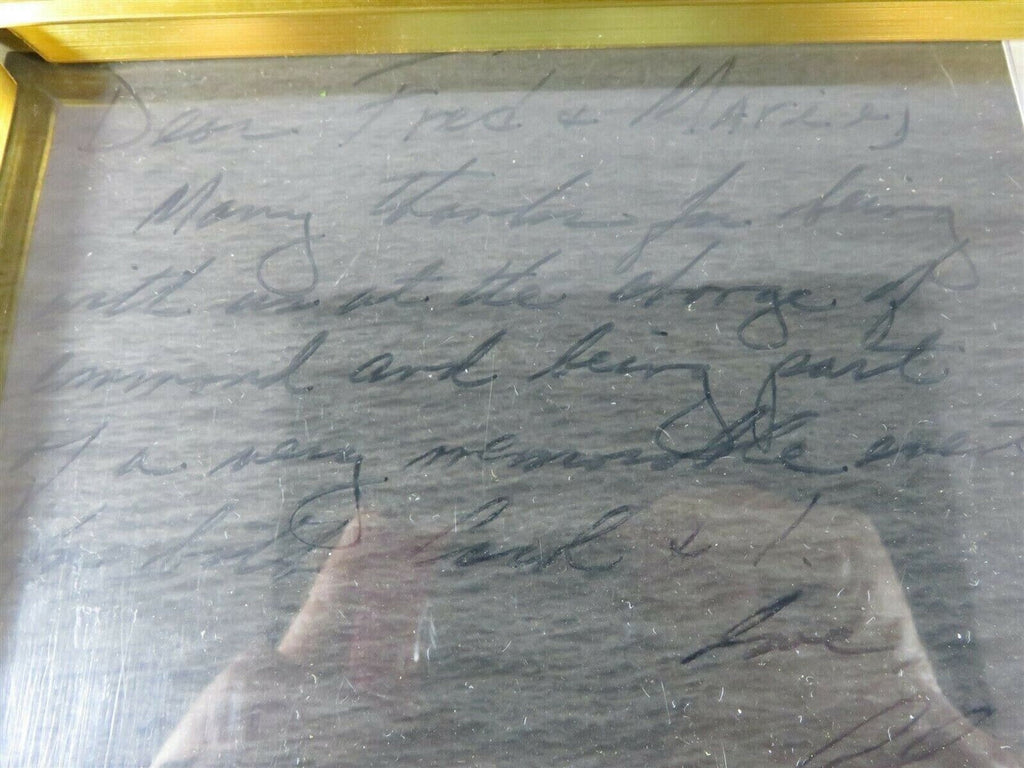 Dear Fred & Marie,
Many thanks for being
with us at the
and being part
of a very memorable event
for both Carl & I.
Love